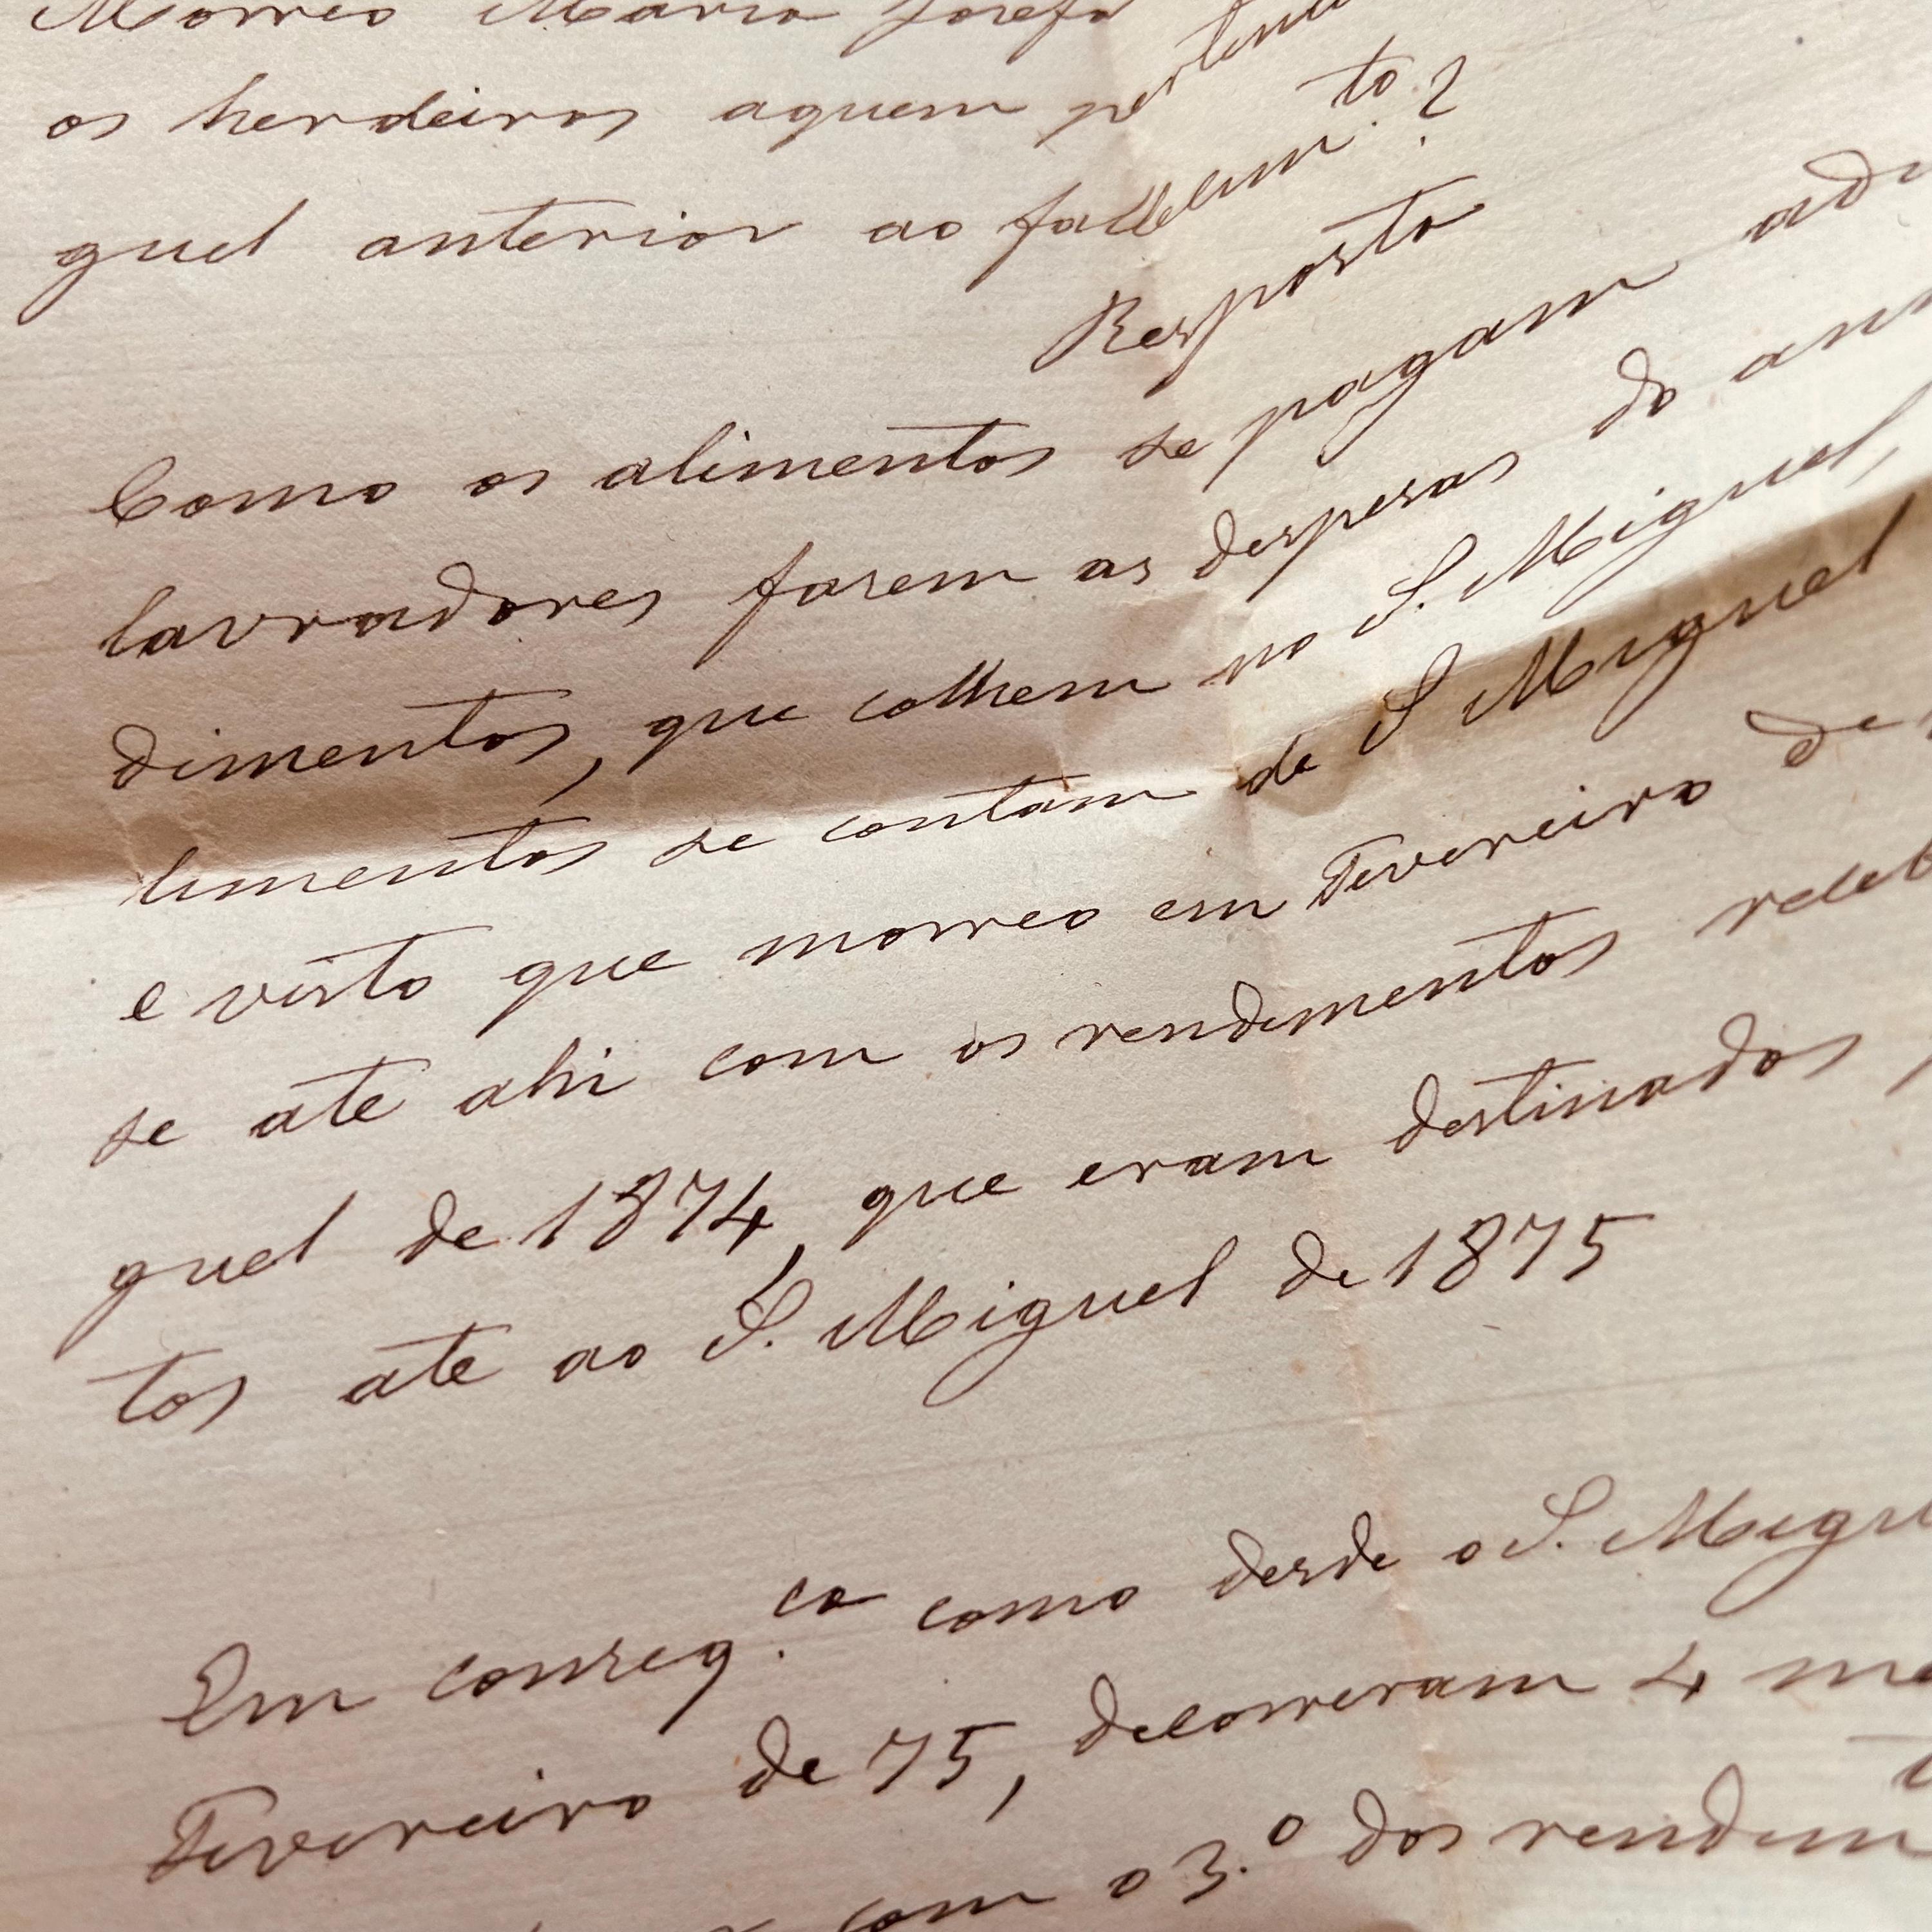 Morreo Maria Josefa
os herdeiros aquem pertence
guel anterior ao fallecim.to?
Resposta
Como os alimentos se pagam
lavradores fasem as despesas do
dimentos, que colhem no S. Miguel,
limentos se contam de S Miguel
e visto que morreo em Fevereiro de
se ate ahi com os rendimentos
guel de 1874, que eram destinados
tos ate ao S. Miguel de 1875
Em conseq.ca como desde o S. Migu
Fevereiro de 75, decorreram 4
com o 3.o dos rendim